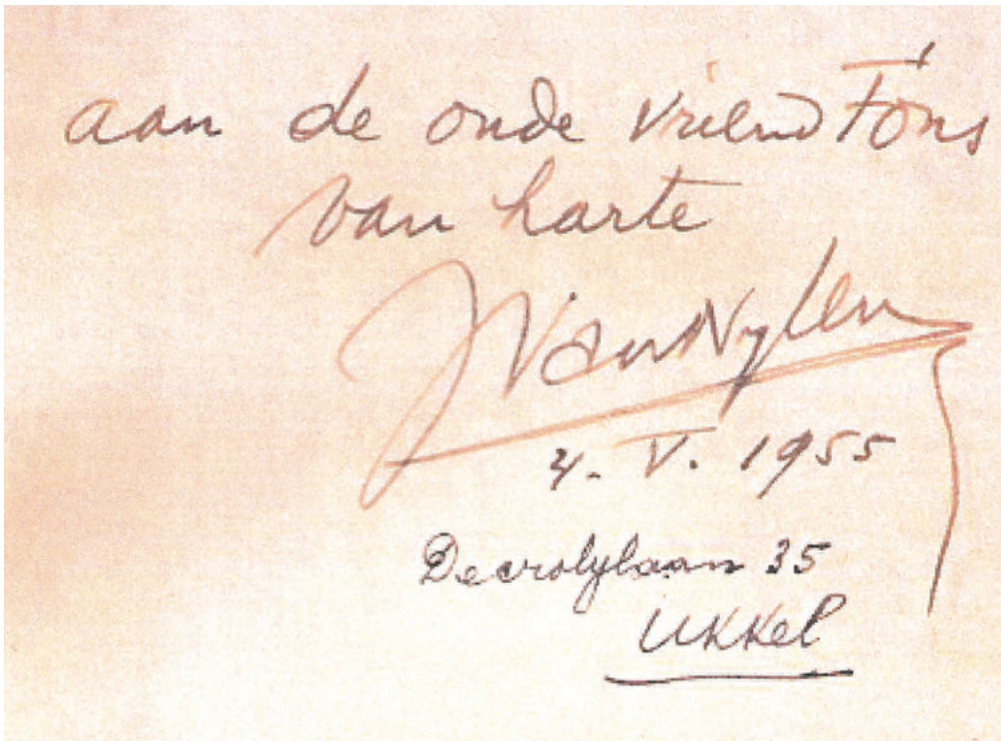 aan de oude vriend Fons
van harte
J Van Nylen
4. V. 1955
Decrolylaan 35
Ukkel